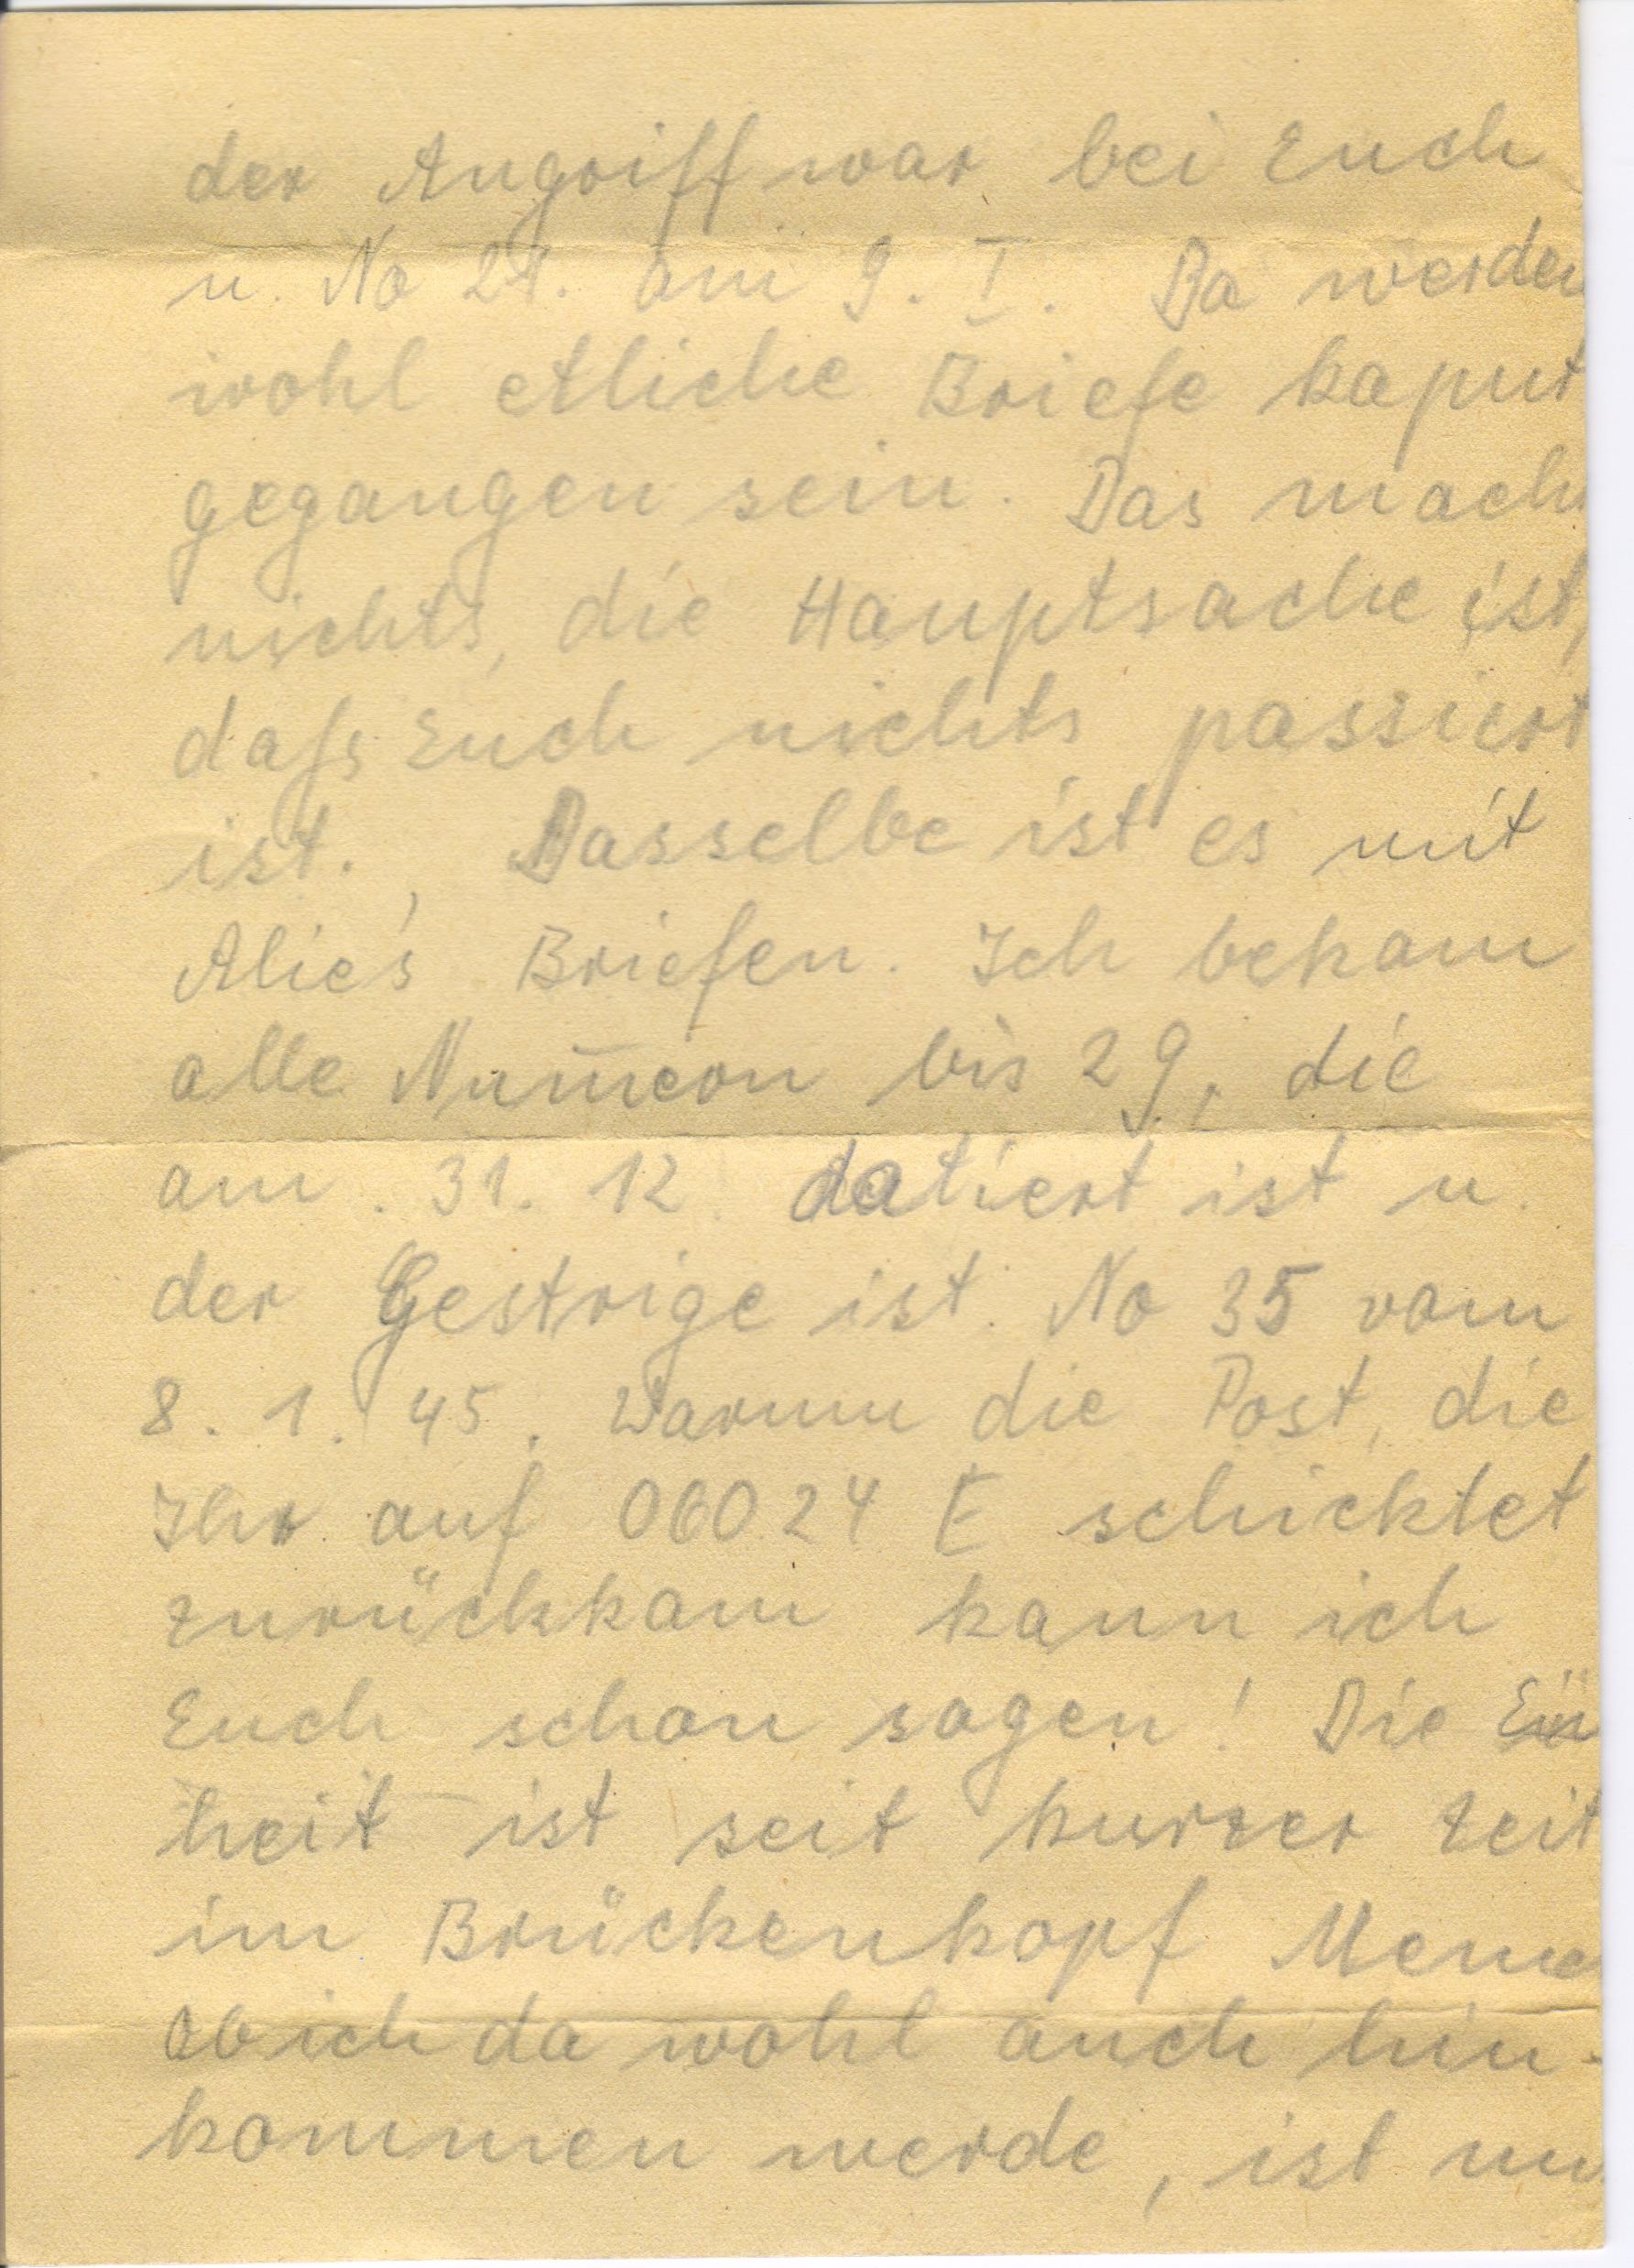 der Angriff war bei Euch
u. No 21. am 9. I. Da werden
wohl etliche Briefe kaput
gegangen sein. Das mach
nichts, die Hauptsache ist,
daß Euch nichts passiert
ist. Dasselbe ist es mit
Alie's Briefen. Ich bekam
alle Num̅ern bis 29, die
am 31. 12. datiert ist u.
der Gestrige ist No 35 vom
8. 1. 45. Warum die Post, die
Ihr auf 06024 E schicktet
zurückkam kann ich
Euch schon sagen! Die Ein
heit ist seit kurzer Zeit
im Brückenkopf Meme
Ob ich da wohl auch hin-
kommen werde, ist